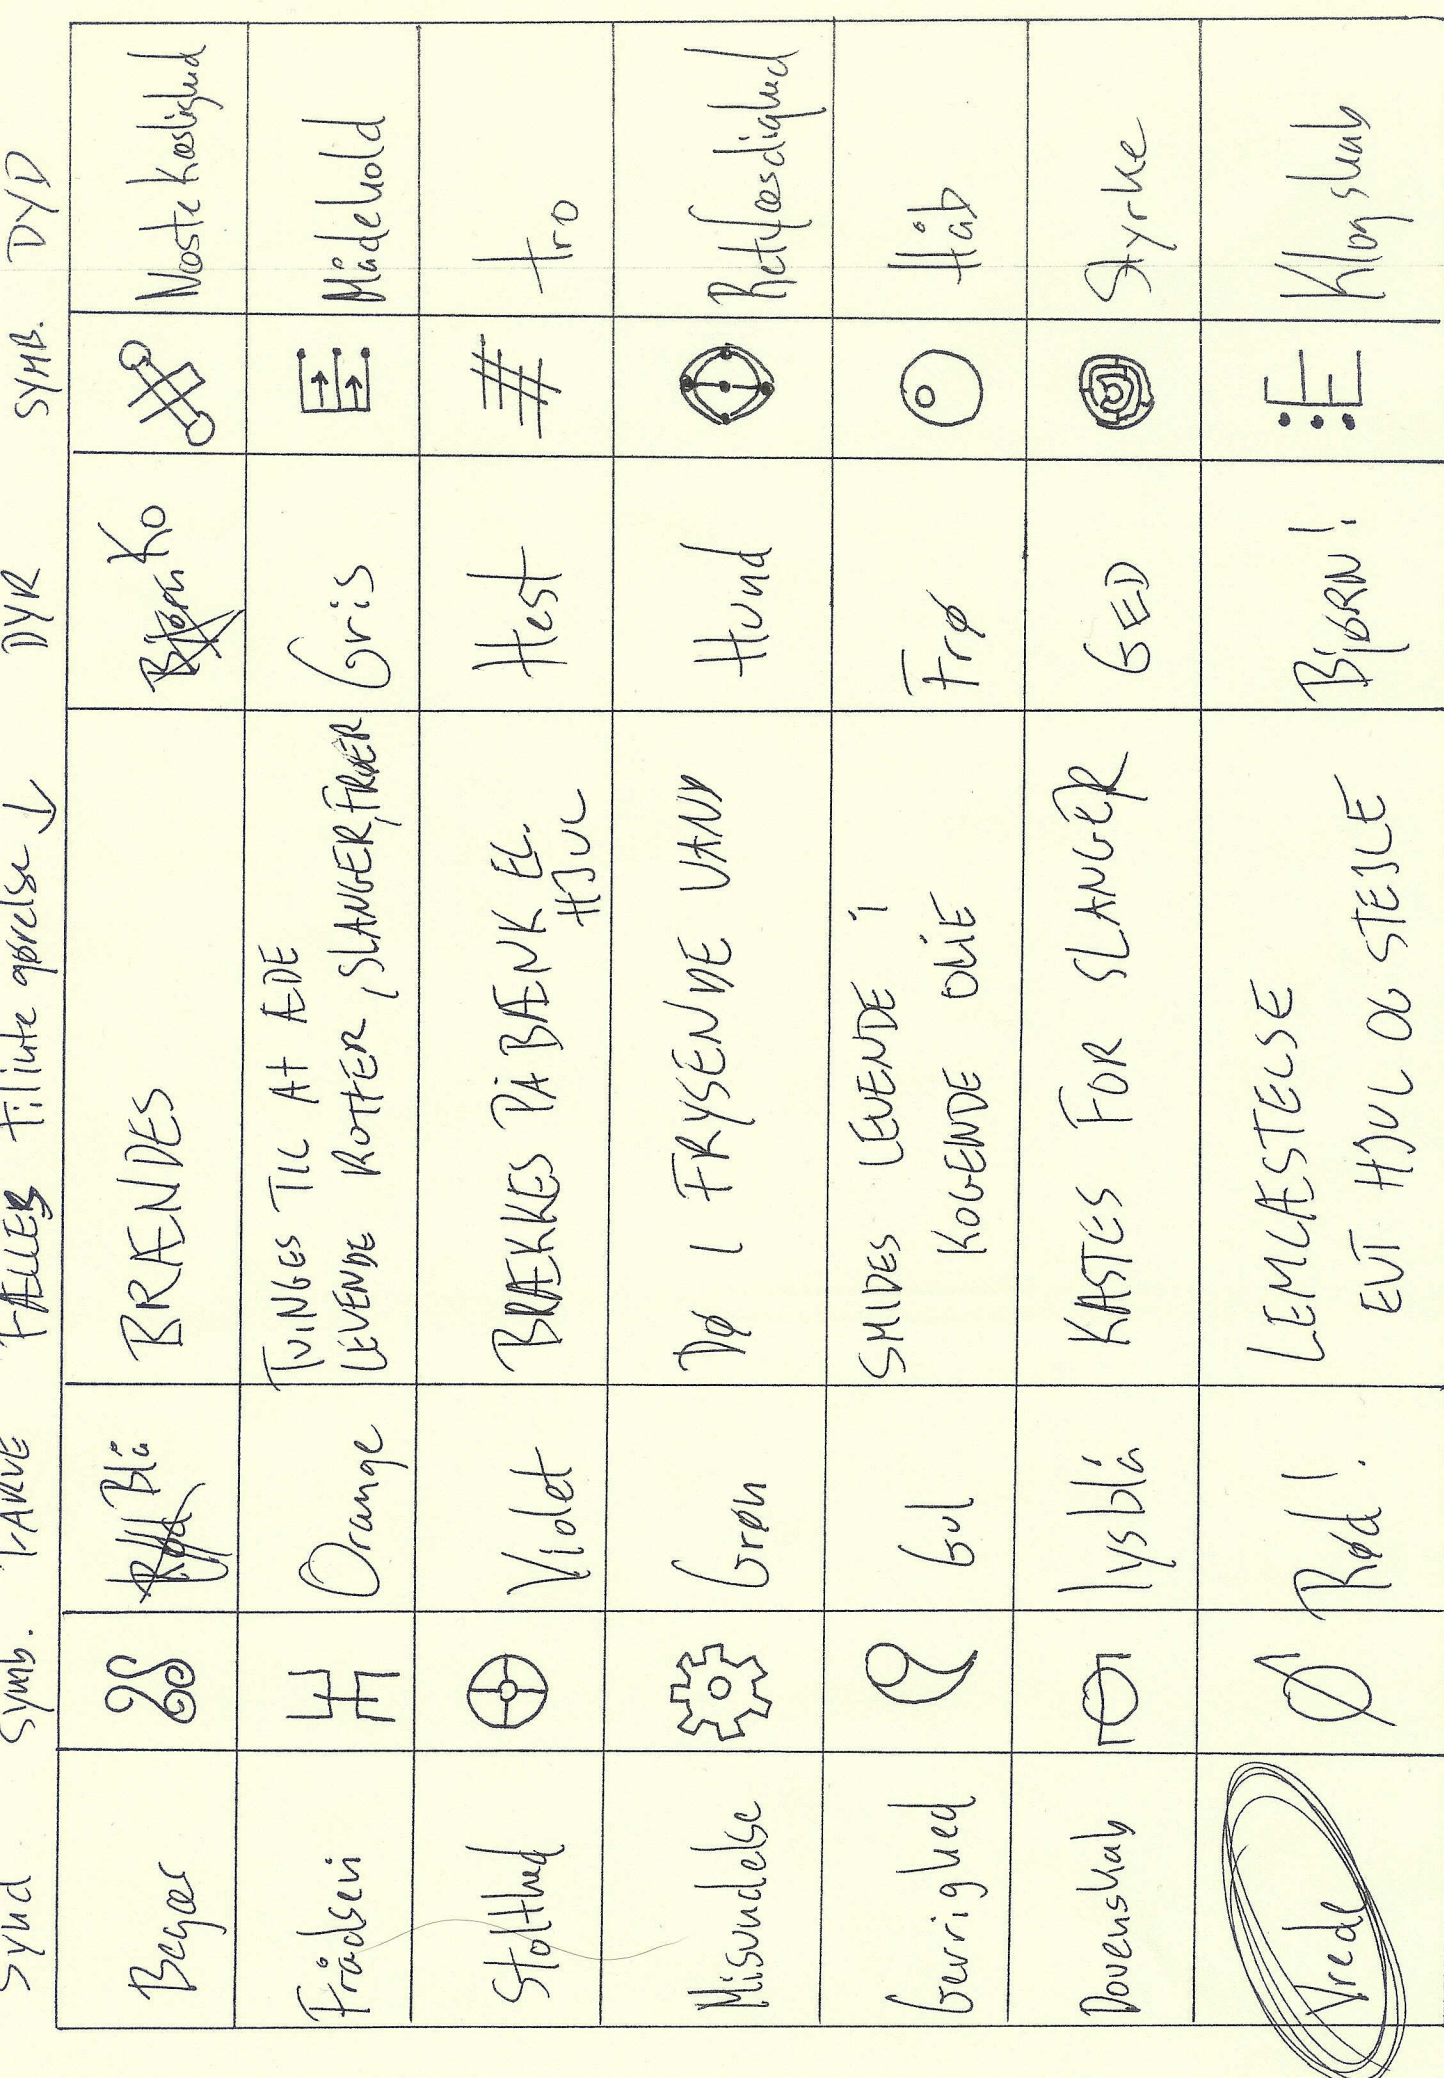 Synd Symb. FARVE FÆLLES tilintegørelse ↓ DYR SYMB. DYD
Begær Rød Blå BRÆNDES Bjørn Ko Næstekærlighed
Frådseri Orange TVINGES TIL AT ÆDE
LEVENDE ROTTER, SLANGER, FRØER Gris Mådehold
Stolthed Violet BRÆKKES PÅ BÆNK EL.
HJUL Hest tro
Misundelse Grøn DØ I FRYSENDE VAND Hund Retfærdighed
Gerrighed Gul SMIDES LEVENDE i
KOGENDE OLIE Frø Håb
Dovenskab lysblå KASTES FOR SLANGER GED Styrke
Vrede Rød! LEMLÆSTELSE
EVT HJUL OG STEJLE BjØRN! Klogskab